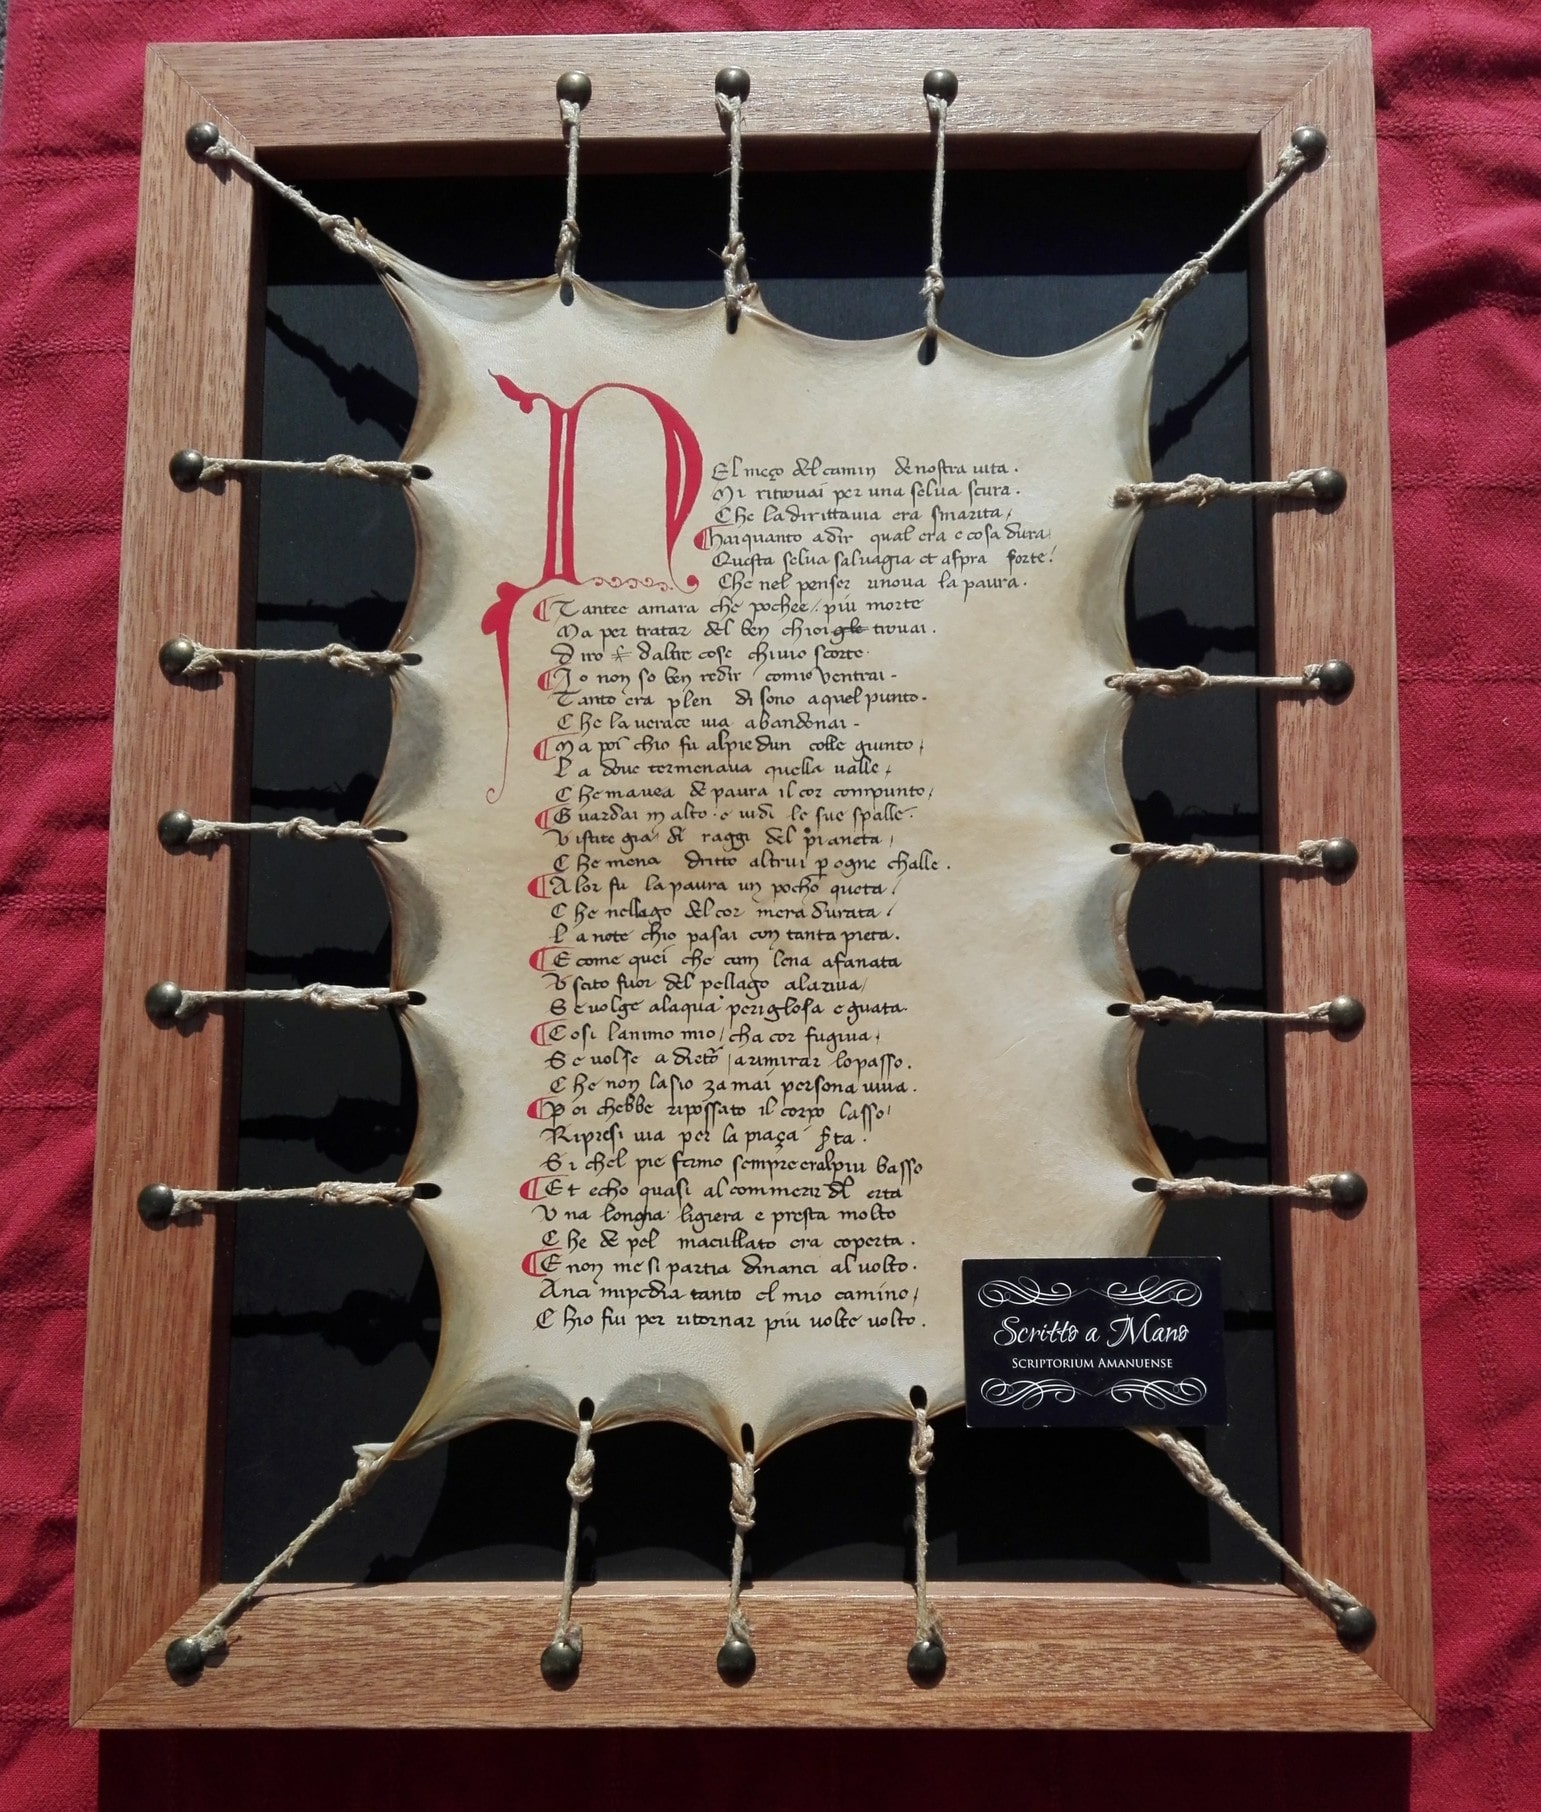 NEl meço del camin de nostra uita.
Mi ritrouai per una selua scura.
Che la dirittauia era smarita/
Hai quanto a dir qual era e cosa dura
Questa selua saluagia et aspra forte!
Che nel penser rinoua la paura.
Tantee amara che pochee/ piu morte
Ma per tratar del ben chioi gle trouai.
diro daltre cose chiuio scorte.
Io non so ben redir comio ventrai-
Tanto era plen di sono aquel punto.
Che la uerace uia abandonai-
Ma poi chio fu alpie dun colle giunto/
La doue termenaua quella ualle/
Che mauea de paura il cor compunto/
Guardai in alto. e uidi le sue spalle.
Vistite gia di raggi del pianeta/
Che mena dritto altrui p ogne challe.
Alor fu la paura un pocho queta/
Che nellago del cor mera durata/
La note chio pasai con tanta pieta.
E come quei che cum lena afanata
Vscito fuor del pellago alariua/
Se uolge alaqua periglosa e guata.
Cosi lanimo mio/ cha cor fugiua/
Se uolse a dieto/ arimirar lopasso.
Che non lasio zamai persona uiua.
Poi chebbe ripossato il corpo lasso/
Ripresi uia per la piaça
Si chel pie fermo sempre eralpiu basso
Et echo quasi al comenzir del erta
Vna longia ligiera e presta molto
Che de pel macullato era coperta.
E non me si partia dinanci al uolto.
Anci mpedia tanto el mio camino/
Chio fui per ritornar piu uolte uolto.
Scritto a Mano
SCRIPTORIUM AMANUENSE